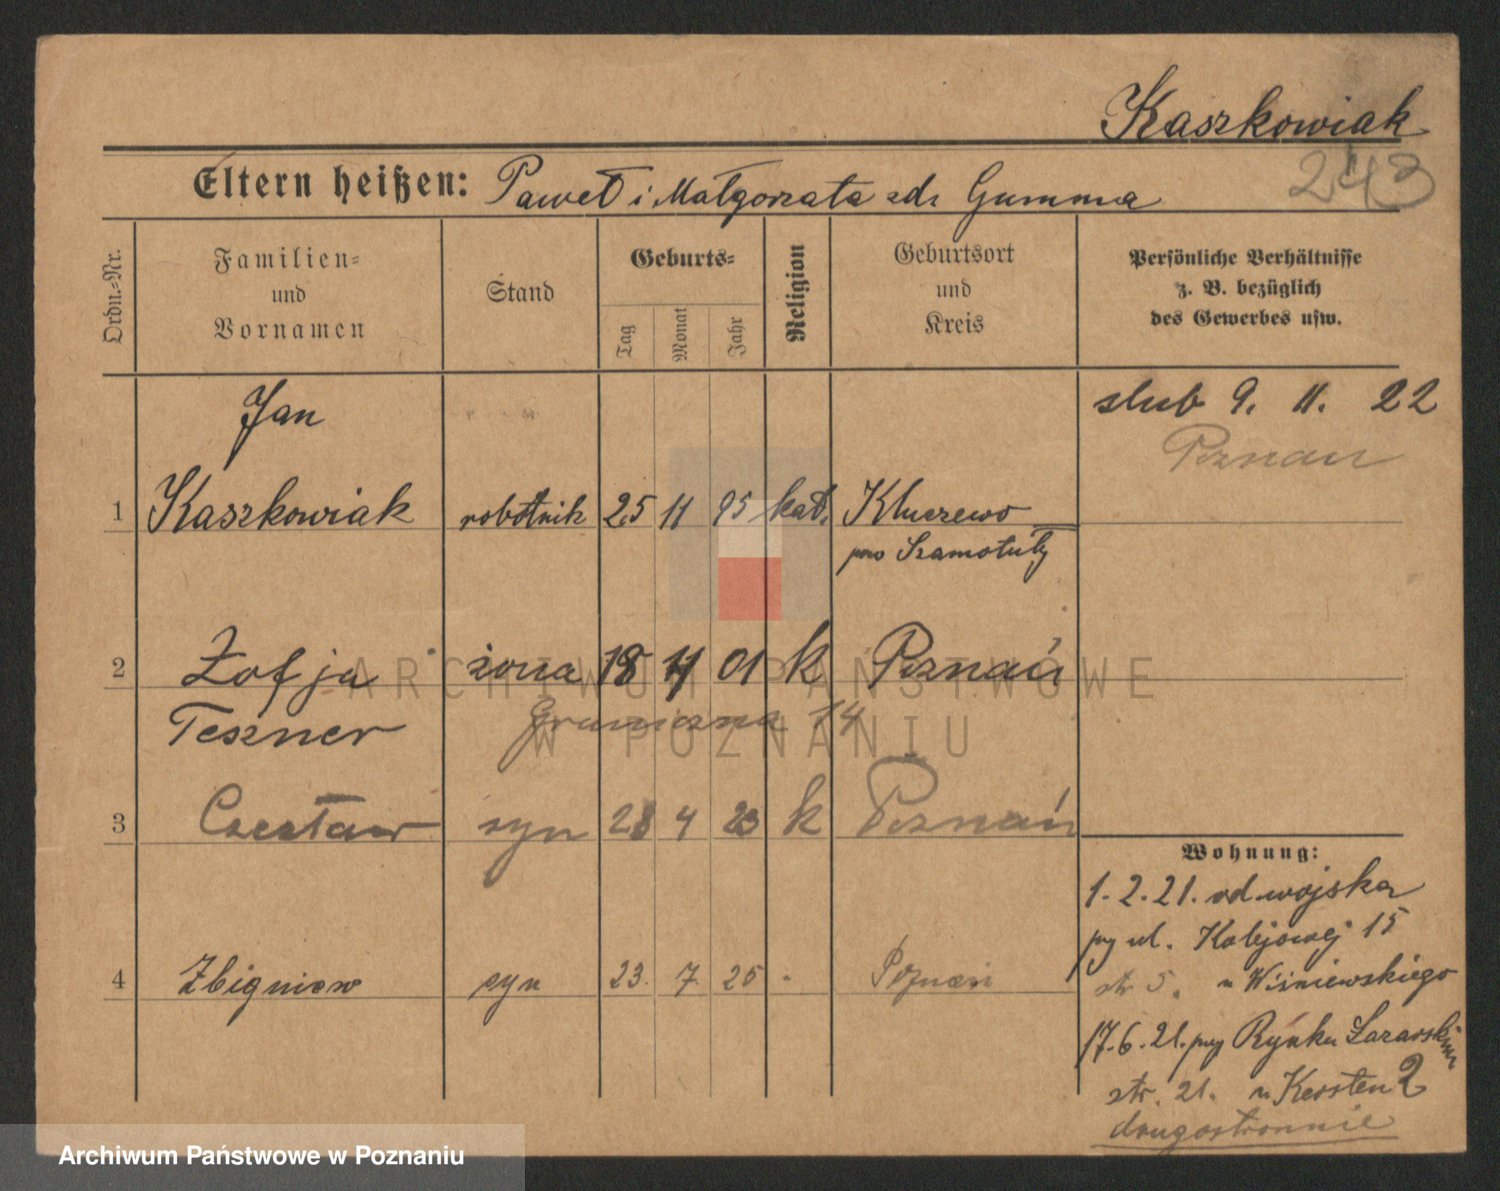 Kaszkowiak
243
Eltern heißen: Paweł i Małgorzata zd. Gumma
Ordn.-Nr.
Familien-
und
Vornamen
Stand
Geburts-
Tag
Monat
Jahr
Religion
Geburtsort
und
Kreis
Persönliche Verhältnisse
z. B. bezüglich
des Gewerbes usw.
Jan
ślub 9. 11. 22
Poznań
1 Kaszkowiak robotnik 25 11 95 kat. Kluczewo
pow Szamotuły
2 Zofja żona 18 4 01 k Poznań
Teszner Graniczna 14
3 Czesław syn 28 4 23 k Poznań
4 Zbigniew syn 23. 7. 25 - Poznań
Wohnung:
1. 2. 21. od wojska
przy ul. Kolejowej 15
str 5. u Wiśniewskiego
17. 6. 21. przy Rynku Łazarskim
str. 21. u Kersten 2
drugostronnie
ARCHIWUM PAŃSTWOWE
W POZNANIU
Archiwum Państwowe w Poznaniu